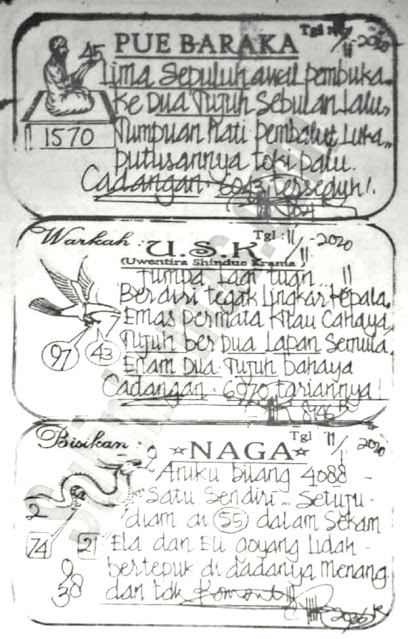 PUE BARAKA
Tgl : 11/11-2020
45
Lima Sepuluh awal pembuka..
ke Dua Tujuh Sebulan Lalu,
1570
Tumpuan Mati Pembalut Luka..
putusannya toki palu.
Cadangan. 6043 terseduh!.
Warkah :
U.S.K
Tgl : 11/11-2020
(Uwentira Shindue Krama)
Tumpa Lagi tuan.. !!
Berdiri tegak lingkar kepala
Emas permata Kilau Cahaya
97 43
Tujuh ber Dua Lapan Semula
Enam Dua Tujuh bahaya
Cadangan. 6970 tariannya!
Bisikan :
NAGA
Tgl 11/11 2020
2
Aniku bilang 4088 -
Satu Sendiri... Setuju -
2
diam di 55 dalam Sekam
74 21
Ela dan Eli goyang Lidah -
bertepuk di dadanya Menang
38
dan tak Komont